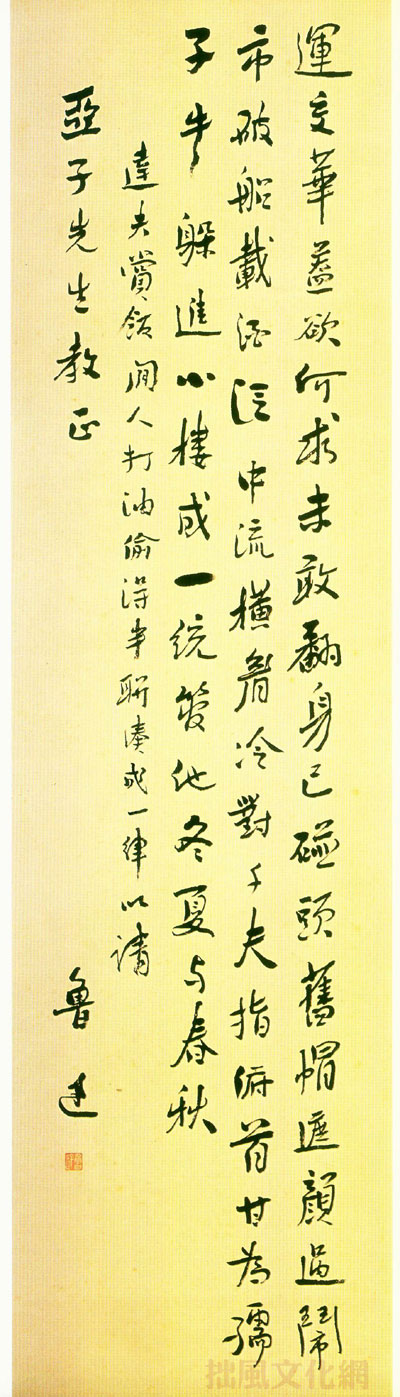 運交華蓋欲何求未敢翻身已碰頭舊帽遮顏過鬧
市破船載酒泛中流橫眉冷對千夫指俯首甘為孺
子牛躲進小樓成一統管他冬夏与春秋
達夫賞飯閒人打油偷得半聯湊成一律以請
亞子先生教正
魯迅
拙風文化網